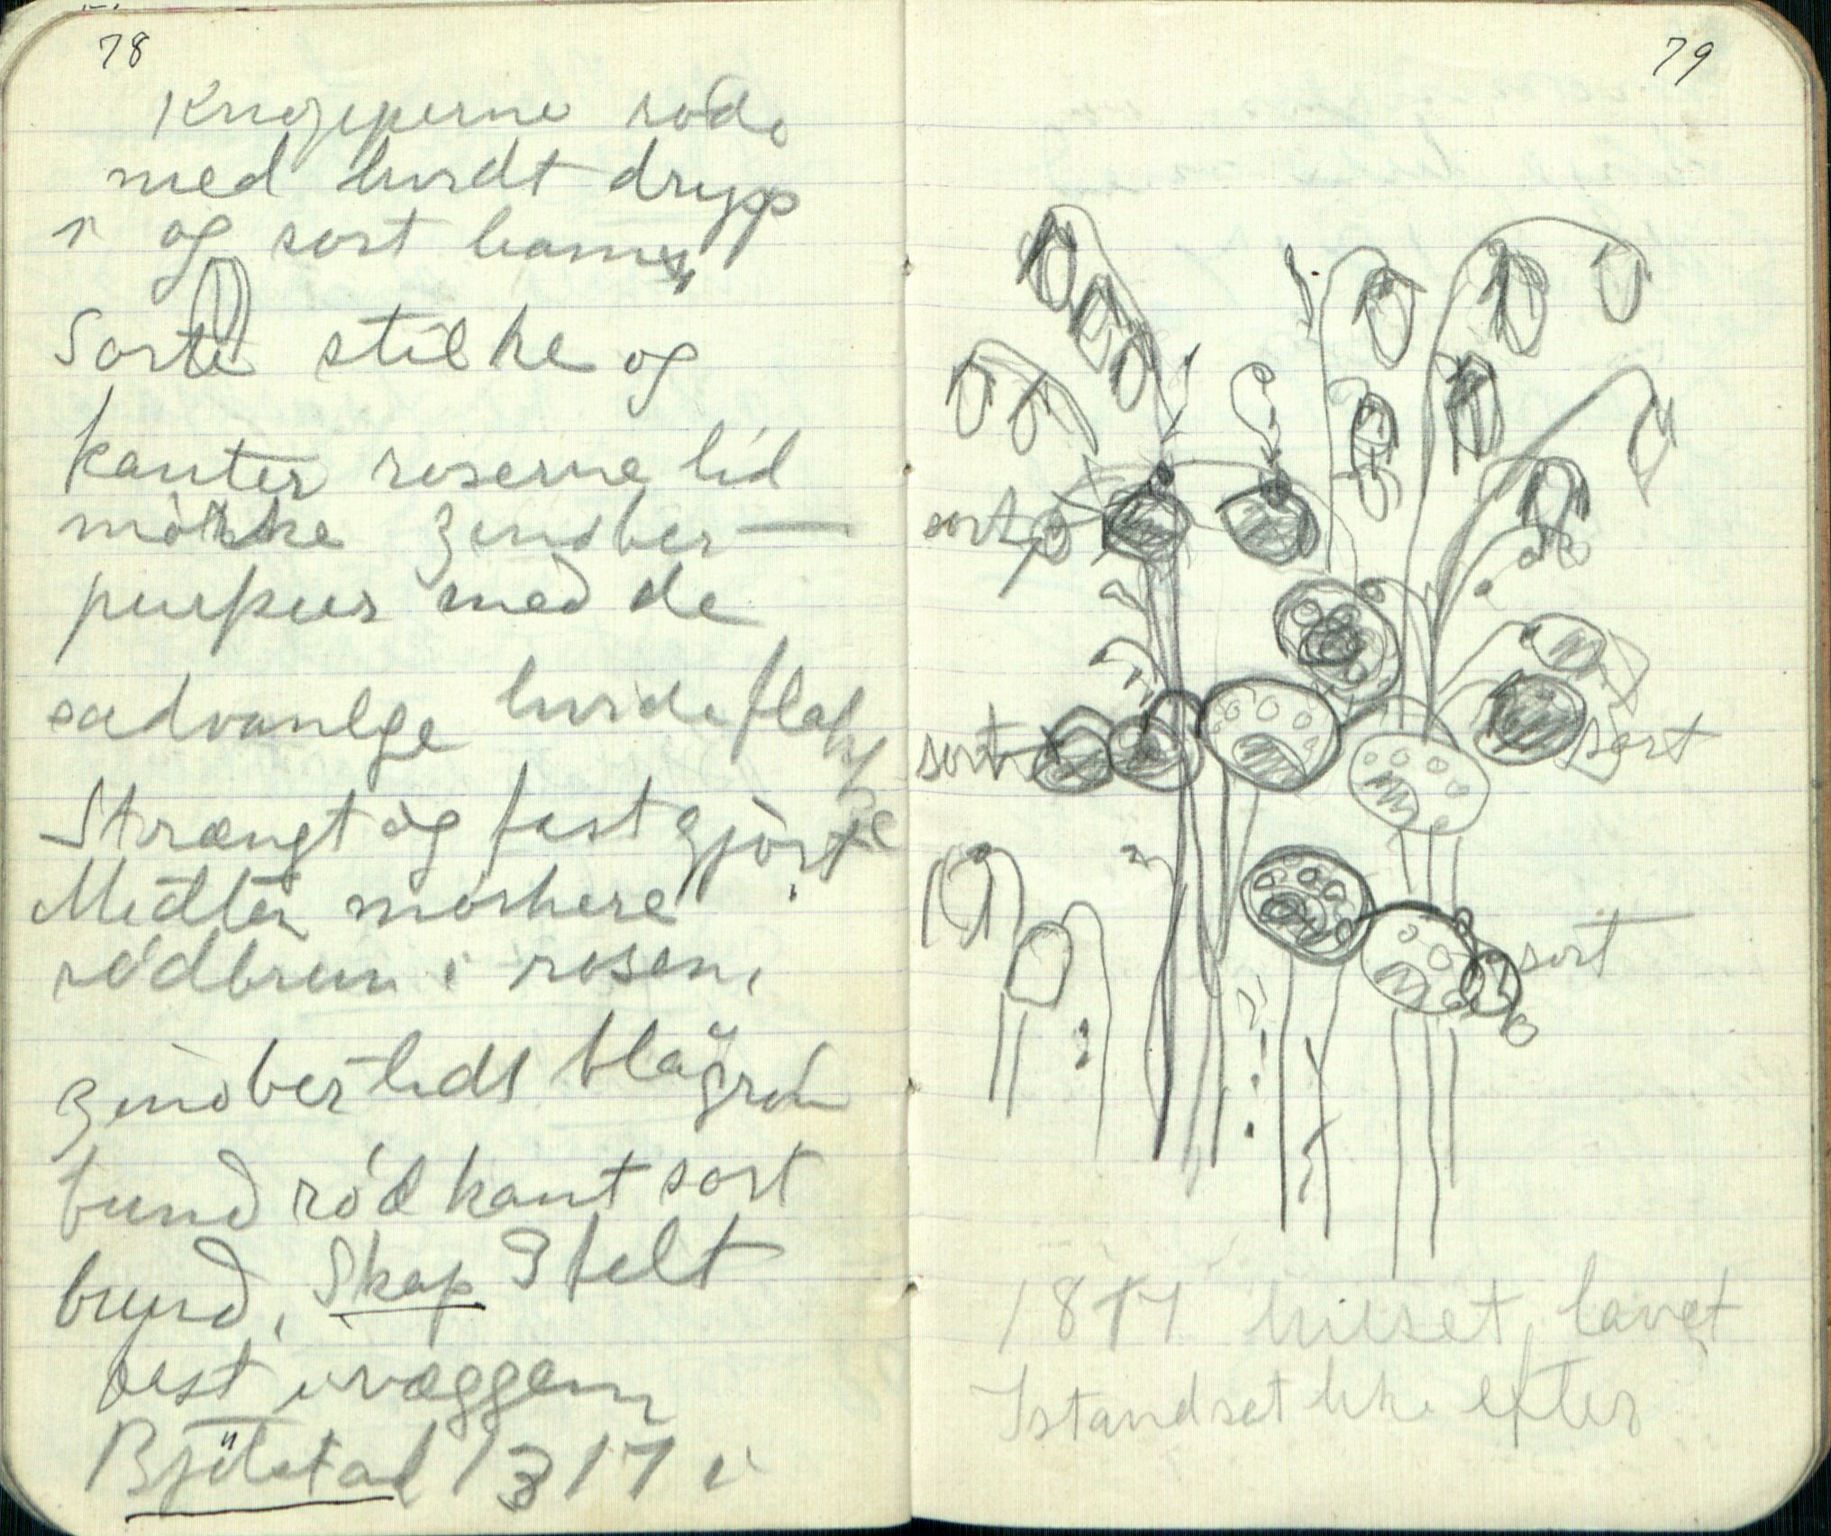 78
Knopperne røde
med hvidt drypp
og sort
Sorte stilke og
kanter roserne lid
mørke zinober —
purpur med de
sædvanlge hvide flak
Strængt og fast gjort
Midten mørkere
rødbrun i rosen,
zinober lidt blågrøn
bund rød kant sort
bund, Skap 3 felt
vest i væggen
Bjølstad 1817 i
79
sort
sort
sort
sort
1817 huset lavet
Istandsat like efter